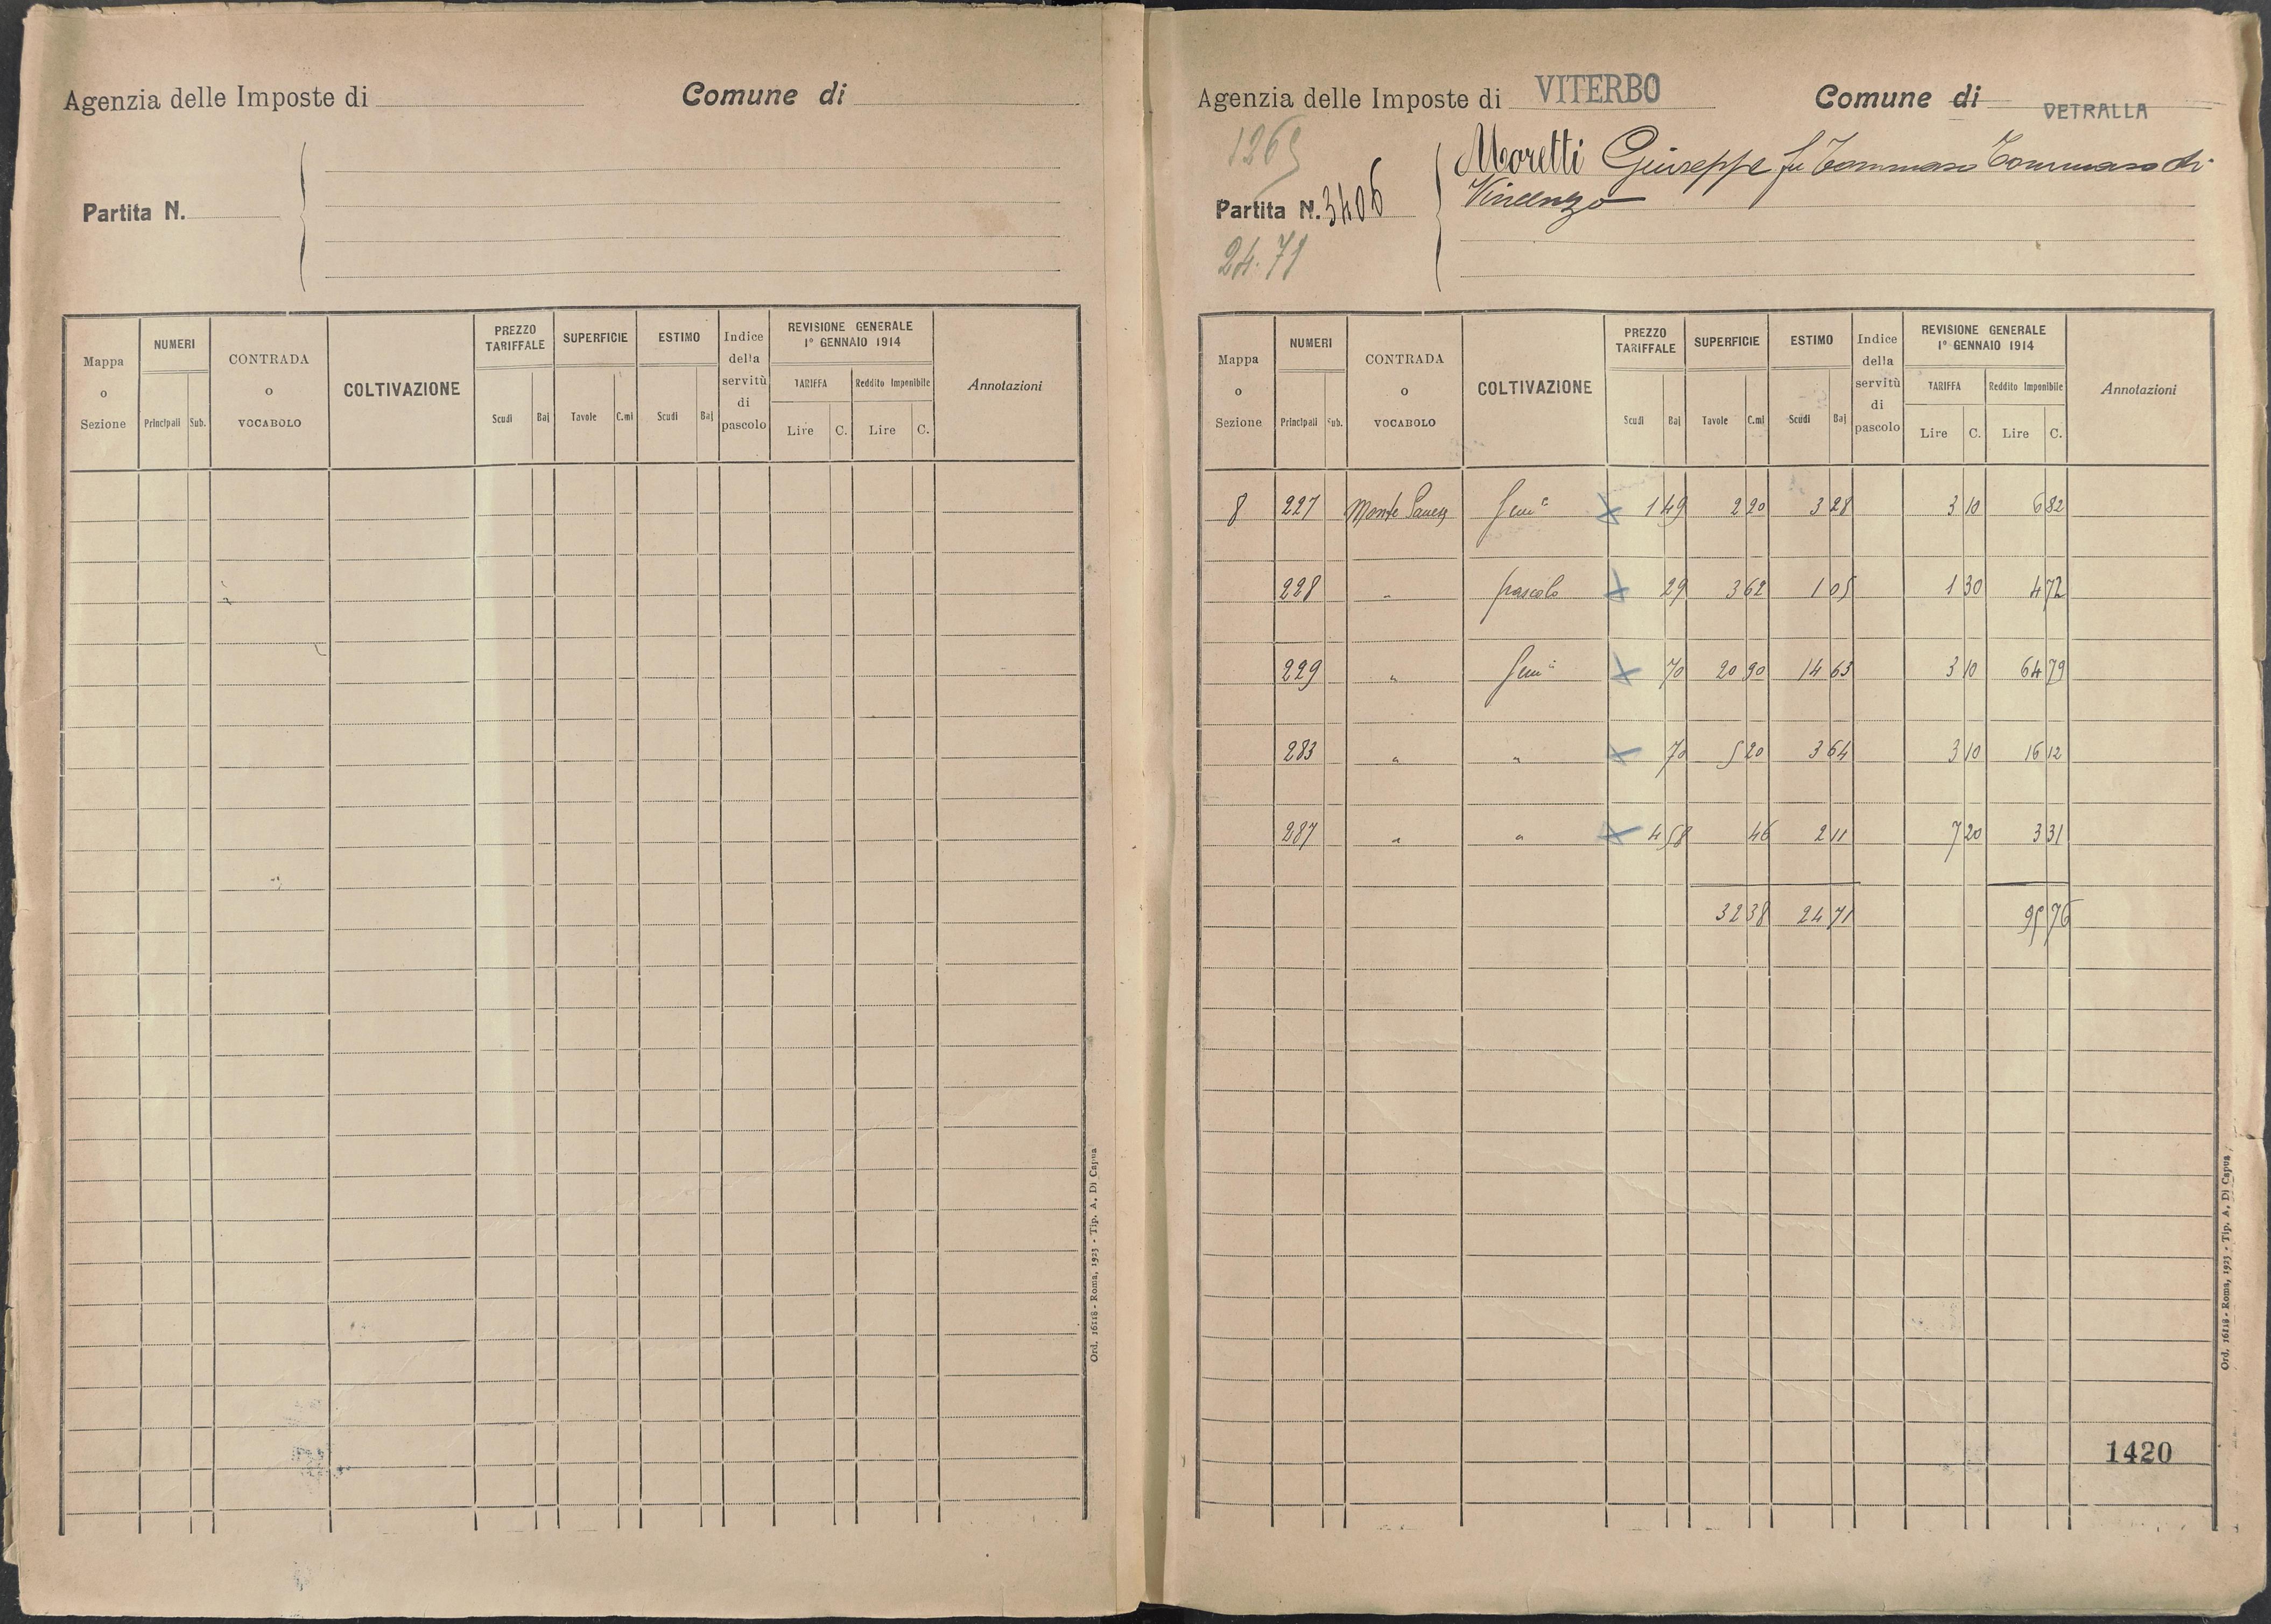 Agenzia delle Imposte di
Comune di
Partita N.
Mappa o Sezione
NUMERI
Principali Sub.
CONTRADA o VOCABOLO
COLTIVAZIONE
PREZZO TARIFFALE
Scudi Baj
SUPERFICIE
Tavole C.mi
ESTIMO
Scudi Baj
Indice della servitù di pascolo
REVISIONE GENERALE
1° GENNAIO 1914
TARIFFA Reddito Imponibile
Lire C. Lire C.
Annotazioni
Ord. 16118 - Roma, 1923 - Tip. A. Di Capua
Agenzia delle Imposte di VITERBO
Comune di VETRALLA
Partita N. 3406
24.71
Moretti Giuseppe fu Tommaso Tommaso di
Vincenzo
Mappa o Sezione
NUMERI
Principali Sub.
CONTRADA o VOCABOLO
COLTIVAZIONE
PREZZO TARIFFALE
Scudi Baj
SUPERFICIE
Tavole C.mi
ESTIMO
Scudi Baj
Indice della servitù di pascolo
REVISIONE GENERALE
1° GENNAIO 1914
TARIFFA Reddito Imponibile
Lire C. Lire C.
Annotazioni
8 227 Monte Sem 1 49 2 20 3 28 3 10 6 82
228 " pascolo 29 3 62 1 05 1 30 4 72
229 " Sem 70 20 90 14 63 3 10 64 79
283 " " 70 5 20 3 64 3 10 16 12
287 " " 4 58 46 2 11 7 20 3 31
32 38 24 71 95 76
1420
Ord. 16118 - Roma, 1923 - Tip. A. Di Capua